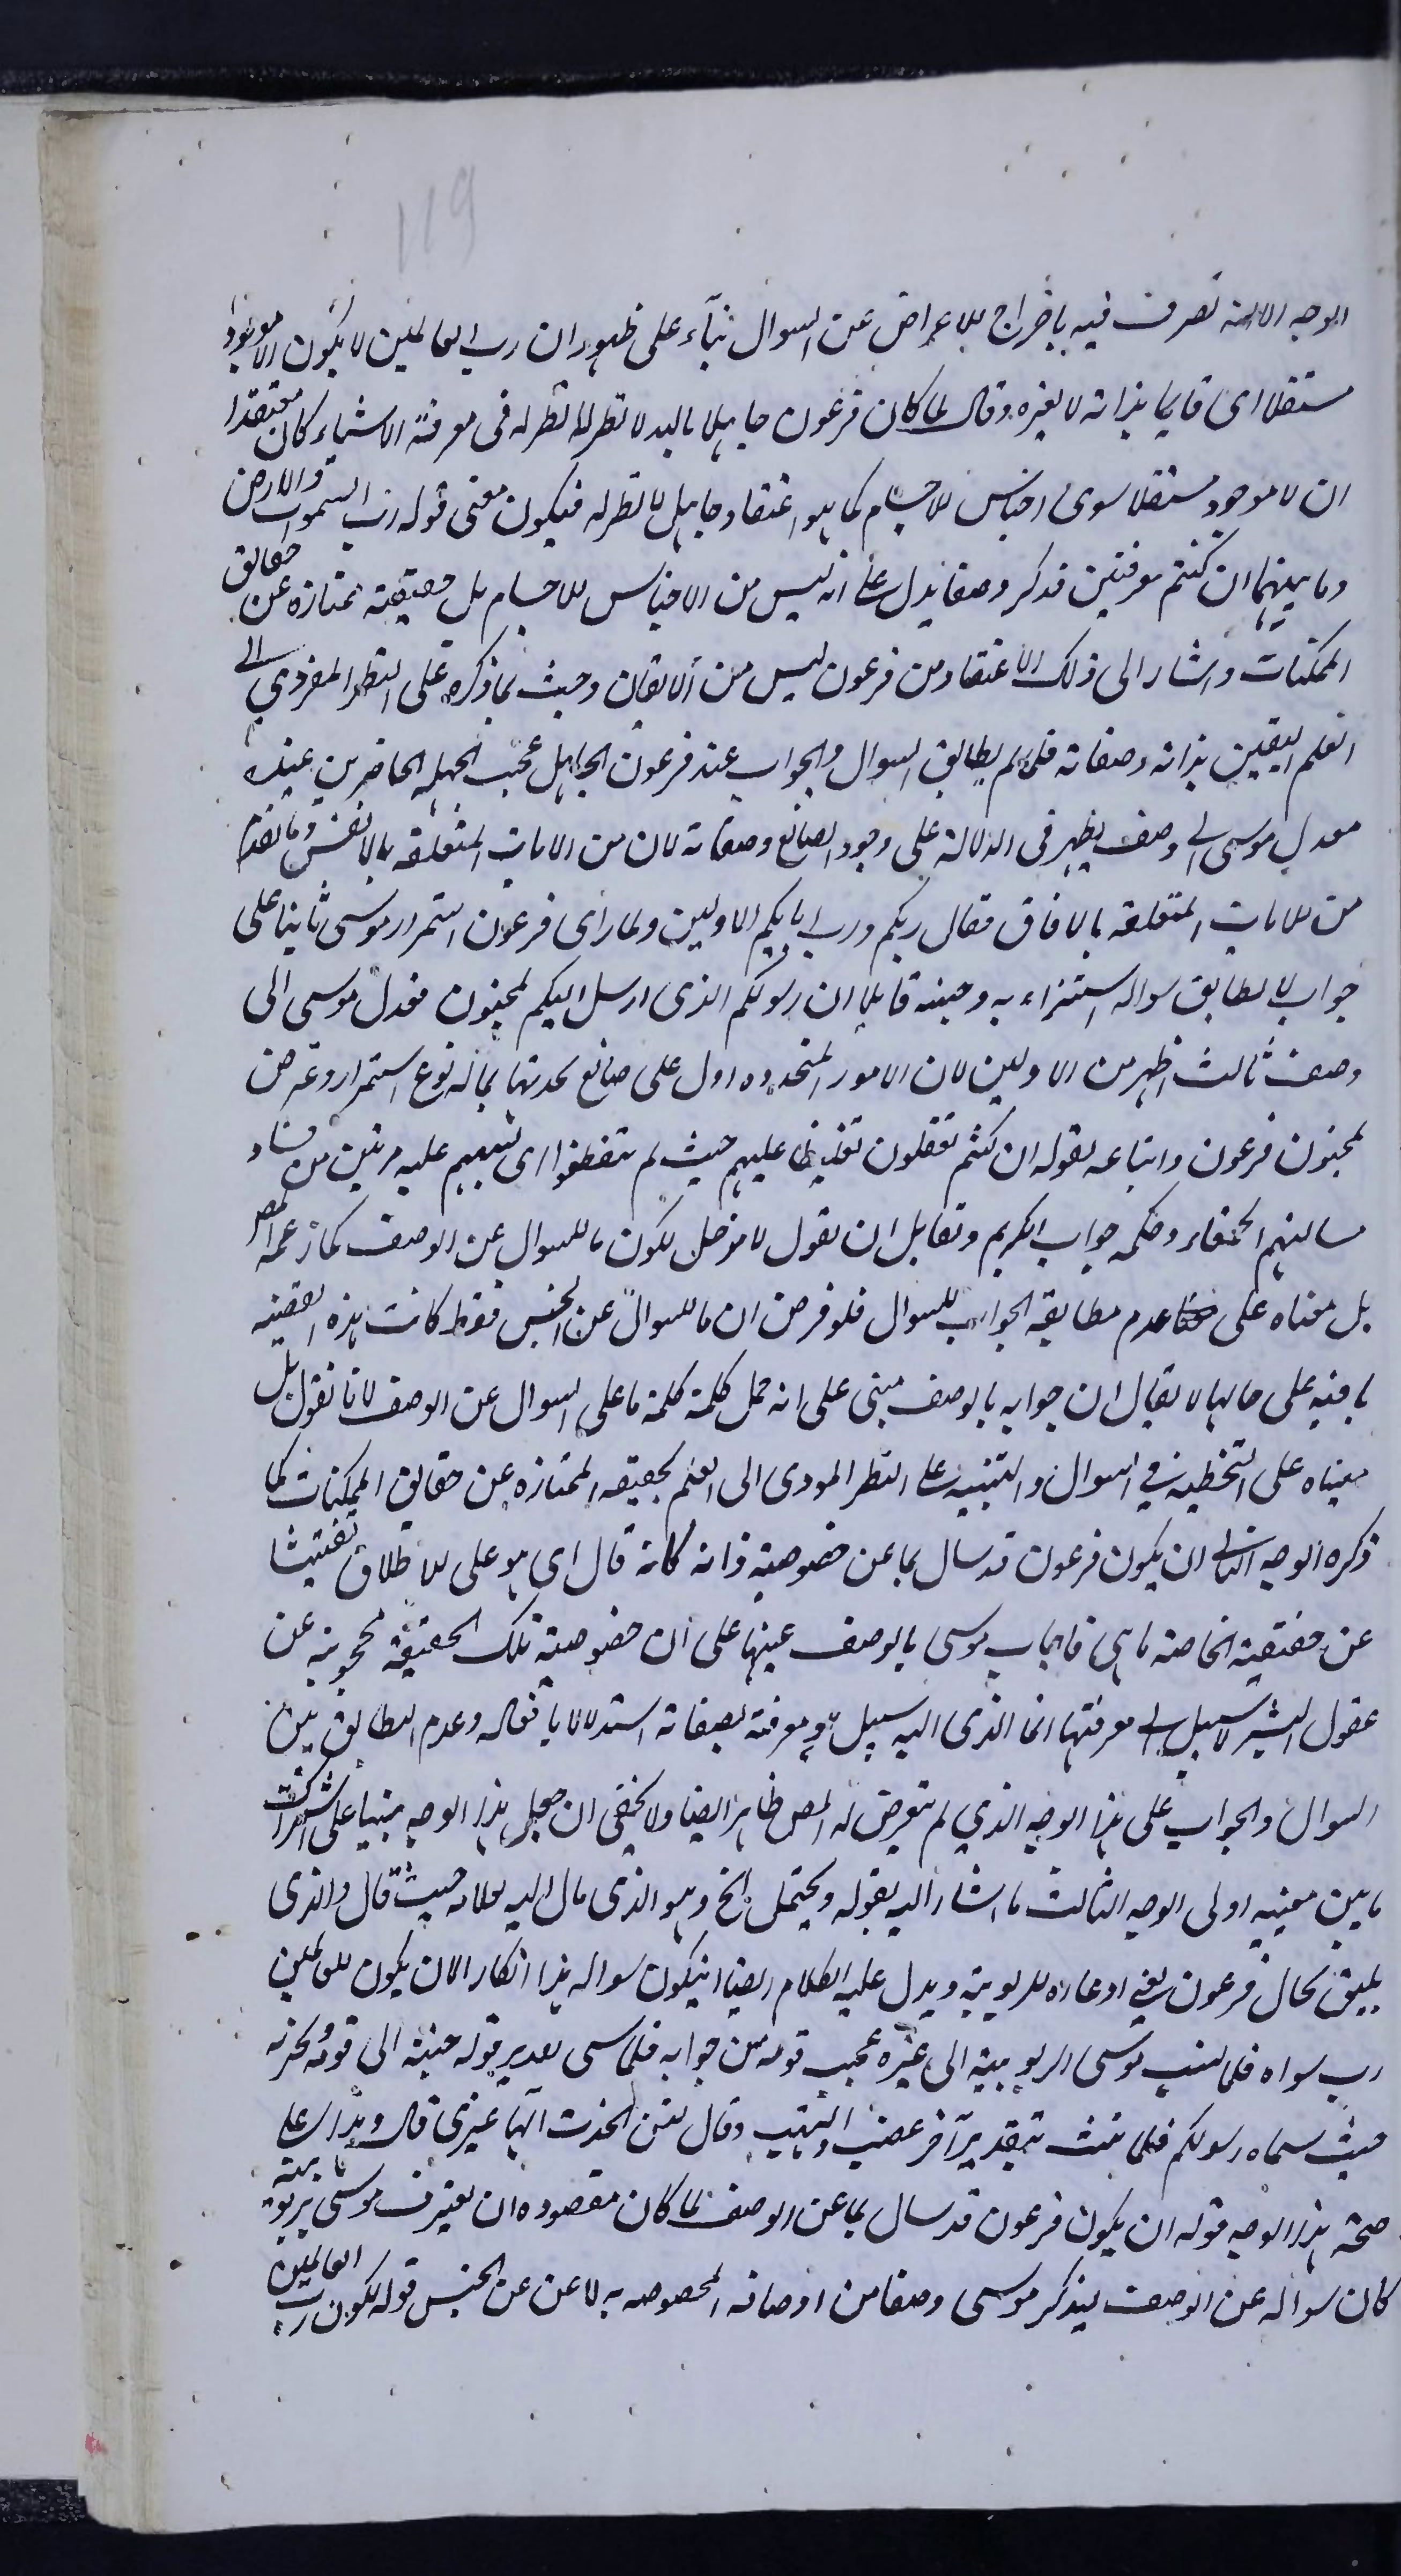 119
الوجه الا انه تصرف فيه باخراج للاعراض عن السوال بناء على ظهور ان رب العالمين لا يكون الا موجودا
مستقلا اى قايما بذاته لا بغيره وقال لما كان فرعون جاهلا بالله لا نظر له فى معرفة الاشياء كان معتقدا
ان لا موجود مستقلا سوى اجناس الاجسام كما هو اعتقاد جاهل لا نظر له فيكون معنى قوله رب السموات والارض
وما بينهما ان كنتم موقنين فذكر وصفا يدل على انه ليس من الاجناس للاجسام بل حقيقته ممتازه عن حقائق
الممكنات واشار الى ذلك الاعتقاد من فرعون ليس من الايقان وحث بما ذكره على النظر المؤدي الى
العلم اليقين بذاته وصفاته فلما لم يطابق السوال والجواب عند فرعون الجاهل عجب الجهله الحاضرين عنده
فعدل موسى الى وصف يظهر فى الدلالة على وجود الصانع وصفاته لان من الايات المتعلقه بالانفس وما تقدم
من الايات المتعلقه بالافاق فقال ربكم ورب ابايكم الاولين ولما راى فرعون استمرار موسى ثانيا على
جواب لا يطابق سواله استهزاء به وجننه قايلا ان رسولكم الذى ارسل اليكم لمجنون فعدل موسى الى
وصف ثالث اظهر من الاولين لان الامور المتجدده ادل على صانع يحدثها بما له نوع استمرار وعرض
لجنون فرعون واتباعه بقوله ان كنتم تعقلون تغليظا عليهم حيث لم يتفطنوا اى تنبيهم عليه مرتين من فساد
مسالتهم الحمقاء وحكمه جواب الكريم ولقايل ان يقول لا مدخل لكون ما للسوال عن الوصف كما زعمه المص
بل مبناه على عدم مطابقة الجواب للسوال فلو فرض ان ما للسوال عن الجنس فقط كانت هذه القضيه
باقيه على حالها لا يقال ان جوابه بالوصف مبنى على انه حمل كلمة كلمة ما على السوال عن الوصف لانا نقول بل
مبناه على التخطيه في السوال والتنبيه على النظر المودى الى العلم بحقيقه الممتازه عن حقايق الممكنات كما
ذكره الوجه الثانى ان يكون فرعون قد سال بما عن خصوصية ذاته كانه قال اى هو على الاطلاق تفتيشا
عن حقيقته الخاصة ما هى فاجاب موسى بالوصف تنبيها على ان خصوصية تلك الحقيقة محجوبة عن
عقول البشر لا سبيل الى معرفتها انما الذى اليه سبيل هو معرفته بصفاته استدلالا بافعاله وعدم التطابق بين
السوال والجواب على هذا الوجه الذي لم يتعرض له المص ظاهر ايضا ولا يخفى ان جعل هذا الوجه مبنيا على اشتراك
ما بين معنييه اولى الوجه الثالث ما اشار اليه بقوله ويحتمل الخ وهو الذى مال اليه العلامه حيث قال والذى
يليق بحال فرعون يعني ادعاءه للربوبية ويدل عليه الكلام ايضا ان يكون سواله هذا انكارا لان يكون للعالمين
رب سواه فلما نسب موسى الربوبية الى غيره عجب قومه من جوابه فلما سمى بعد تقرير قوله جننه الى قومه وسخر به
حيث سماه رسولكم فلما ثلث بتقرير آخر غضب والتهب وقال لئن اتخذت الها غيرى قال ويدل على
صحة هذا الوجه قوله ان يكون فرعون قد سال بما عن الوصف لما كان مقصوده ان يعترف موسى بربوبيته
كان سواله عن الوصف ليذكر موسى وصفا من اوصافه المخصوصه به لا عن عن الجنس قوله لكون رب العالمين